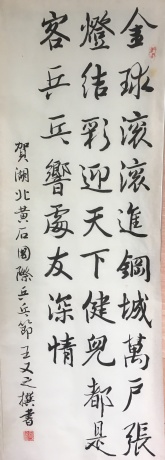 金球滚滚進鋼城萬戸張
燈结彩迎天下健兒都是
客乒乓響處友深情
賀湖北黄石國際乒乓節王又之撰書